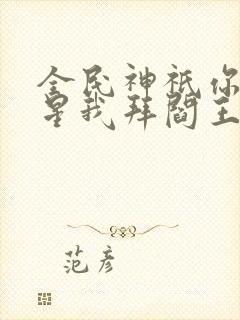 全民神祇你
星我拜阎王
范彦